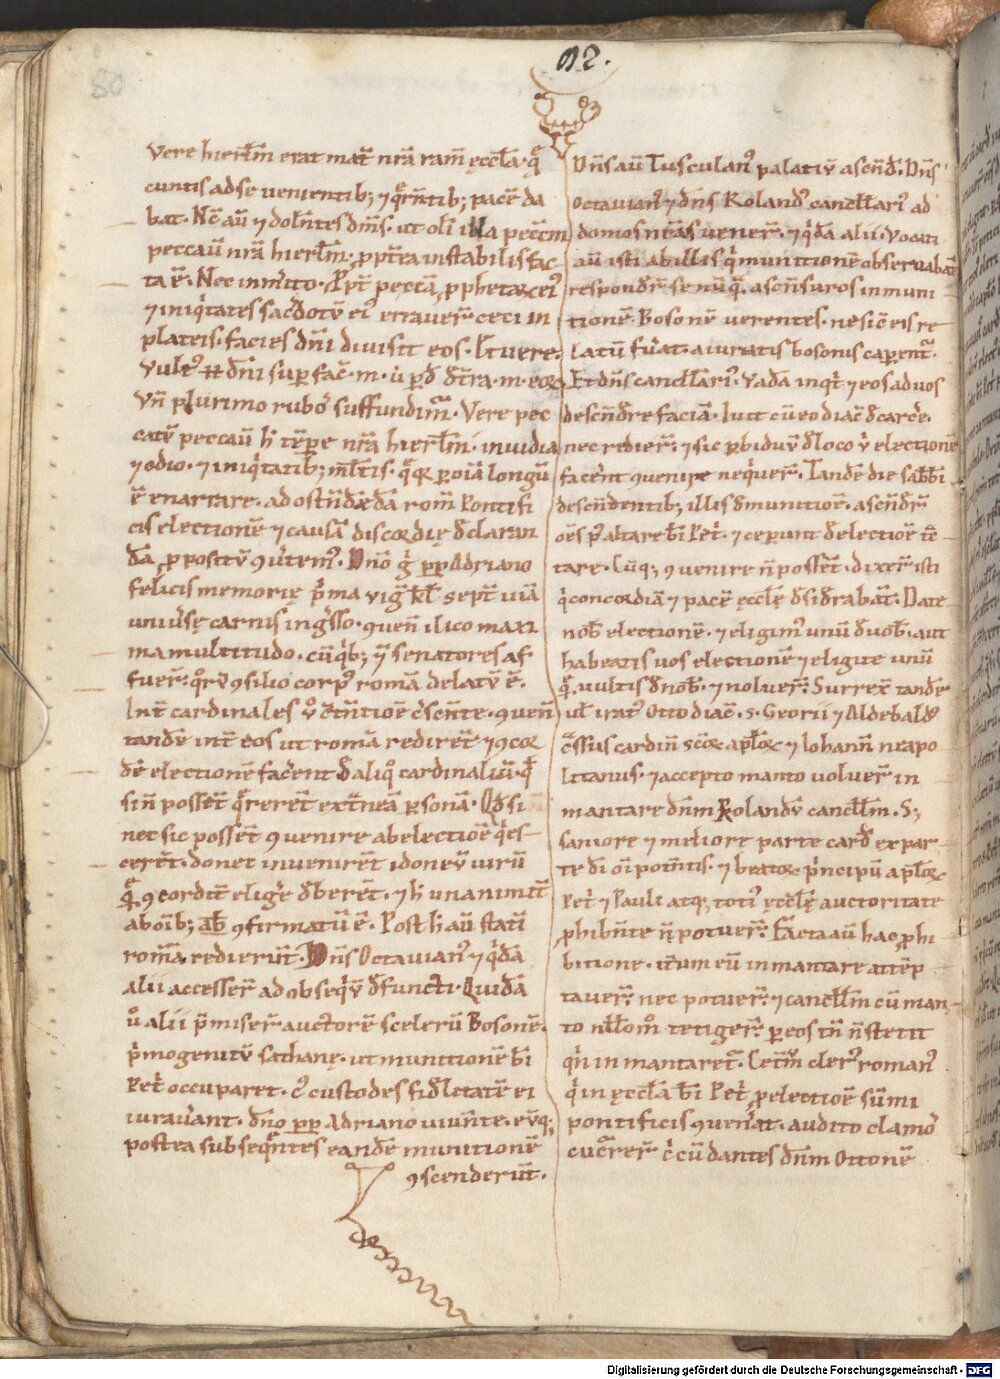 80
92.
Vere hierłm erat mat̄ nr̄a ram̄ ęccła. q̄
cunctis ad se venientib; ⁊ q̄rn̄tib; pacē da
bat. Nc̄ aū ⁊ doln̄tes dm̄s. ut oli illa peccm̄
peccaū nr̄a hierłm; ꝓpt̄ea instabilis fac
ta ē. Nec inm̄ito. Ꝓpt̄ peccā ꝓphetaꝝ ei᾽
⁊ iniq̇tates sac̄dotū ei᾽ erraver̄ ceci in
plateis. facies dn̄i divisit eos. Et vere.
Vult᾽ dn̄i sup̱ fac̄.m.
Vn̄ plurimo rubo᾽ suffundim᾽. Vere pec
catū peccaū h̄ tēp̱e nr̄a hierłm. invidia
⁊ odio. ⁊ iniq̇tatib; ml̄tis. q̄ꝝ p̱ oīa longū
ē enarrare. ad ostn̄dēdā rom̄ Pontifi
cis electionē ⁊ causā discordię d̄claran
dā, ꝓpositū ꝯv̄tem᾽. Dn̄o ḡ pp̄ Adriano
felicis memorię p̄ma vig̃ kł septē viā
univ̄sę carnis ing̃sso. ꝯuen̄ ilico maxi
ma multitudo. cū q̇b; ⁊ senatores af
fuer̄. q̊ꝝ ꝯsilio corp᾽ romā delatū ē.
Int̄ cardinales v̊ ꝯt̄ntiōe c̄scn̄te. ꝯuen̄
tandē int̄ eos ut romā redirēt ⁊ ꝯcor
dē electionē fac̄ent d̄ aliq̊ cardinaliū. q̇
si n̄ possēt q̄rerēt ext̄neā p̱sonā. Qd̄ si
nec sic possēt ꝯvenire ab electiōe q̇es
cerēt. donec invenirēt idoneū virū
q̄ ꝯcordit̄ elig̃e d̄berēt. ⁊ h̄ unanimit̄
ab oīb; ꝯfirmatū ē. Post h̄ aū statī
romā redierūt. Dn̄s Octavian᾽ ⁊ q̇dā
alii accesser̄ ad obseq̇ū d̄functi. Quidā
v̊ alii p̄miser̄ auctorē scelerū Bosonē.
ṗmogenitū sathanę. ut munitionē bī
Pet̄ occuparet. c̄ custodes fidl̄itatē ei
iurav̄ant. dn̄o pp̄ Adriano viun̄te. eūq;
postea subseq̄ntes eandē munitionē
ꝯscenderūt.
Dn̄s aū Tusculan᾽ palatiū ascn̄d̄. Dn̄s
Octavian᾽ ⁊ dn̄s Roland᾽ cancellari᾽ ad
domos nr̄as vener̄. ⁊ q̇dā alii. Vocati
aū isti ab illis q̇ munitionē observabāt
respondēr se nūq̄ ascn̄suros in muni
tionē. Bosonē verentes. ne sic̄ eis re
latū fu̇at. a iuratis bosonis cap̱ent᾽.
Et dn̄s cancellari᾽. Vadā inqt̄ ⁊ eos ad vos
descn̄dre faciā. Iuit cū eo diac̄ d̄ carc̄e.
nec redier̄. ⁊ sic p̱ biduū d̄ loco ū electionē
facēnt ꝯvenire neq̇ver̄. Tandē die sabbi
descn̄dentib; illis d̄ munitiōe. ascn̄der̄
oēs p̄ altare bī Pet̄. ⁊ cep̱unt d̄ electiōe t̄c
tare. Cūq; ꝯvenire n̄ possēt. dixer̄ isti
q̇ concordiā ⁊ pacē ęccłę d̄sid̄rabāt. Date
nob̄ electionē. ⁊ eligim᾽ unū d̄ vob̄. aut
habeatis vos electionē ⁊ eligite unū
q̄ vultis d̄ nob̄. ⁊ noluer̄. Surrex̄ tandē
ul̄ irat᾽ Otto diac̄. s. Georii ⁊ Aldebald᾽
c̄ssus cardin̄ sc̄oꝝ apłoꝝ ⁊ Iohann̄ neapo
litanus. ⁊ accepto manto voluer̄ in
mantare dn̄m Rolandū cancełłm. S;
saniore ⁊ meliore parte card̄ ex par
te dī oīpotn̄tis. ⁊ beatoꝝ ṗncipū apłoꝝ
Pet̄ ⁊ Pauli atq; toti᾽ ęccłę auctoritate
ꝓhibn̄te n̄ potuer̄. Facta aū hac ꝓhi
bitione. it̄um eū inmantare attēp
taver̄. nec potuer̄. ⁊ cancełłm cū man
to nłłom᾽ tetiger̄. p̱ eos tn̄ n̄ stetit
q̇n inmantaret᾽. Cet̄m cler᾽ roman᾽
q̇ in ęccła bī Pet̄ ꝓ electiōe sūmi
pontificis ꝯven̄at. audito clamo᾽
cuc̄rer̄ c̄cūdantes dn̄m Ottonē
Digitalisierung gefördert durch die Deutsche Forschungsgemeinschaft - DFG